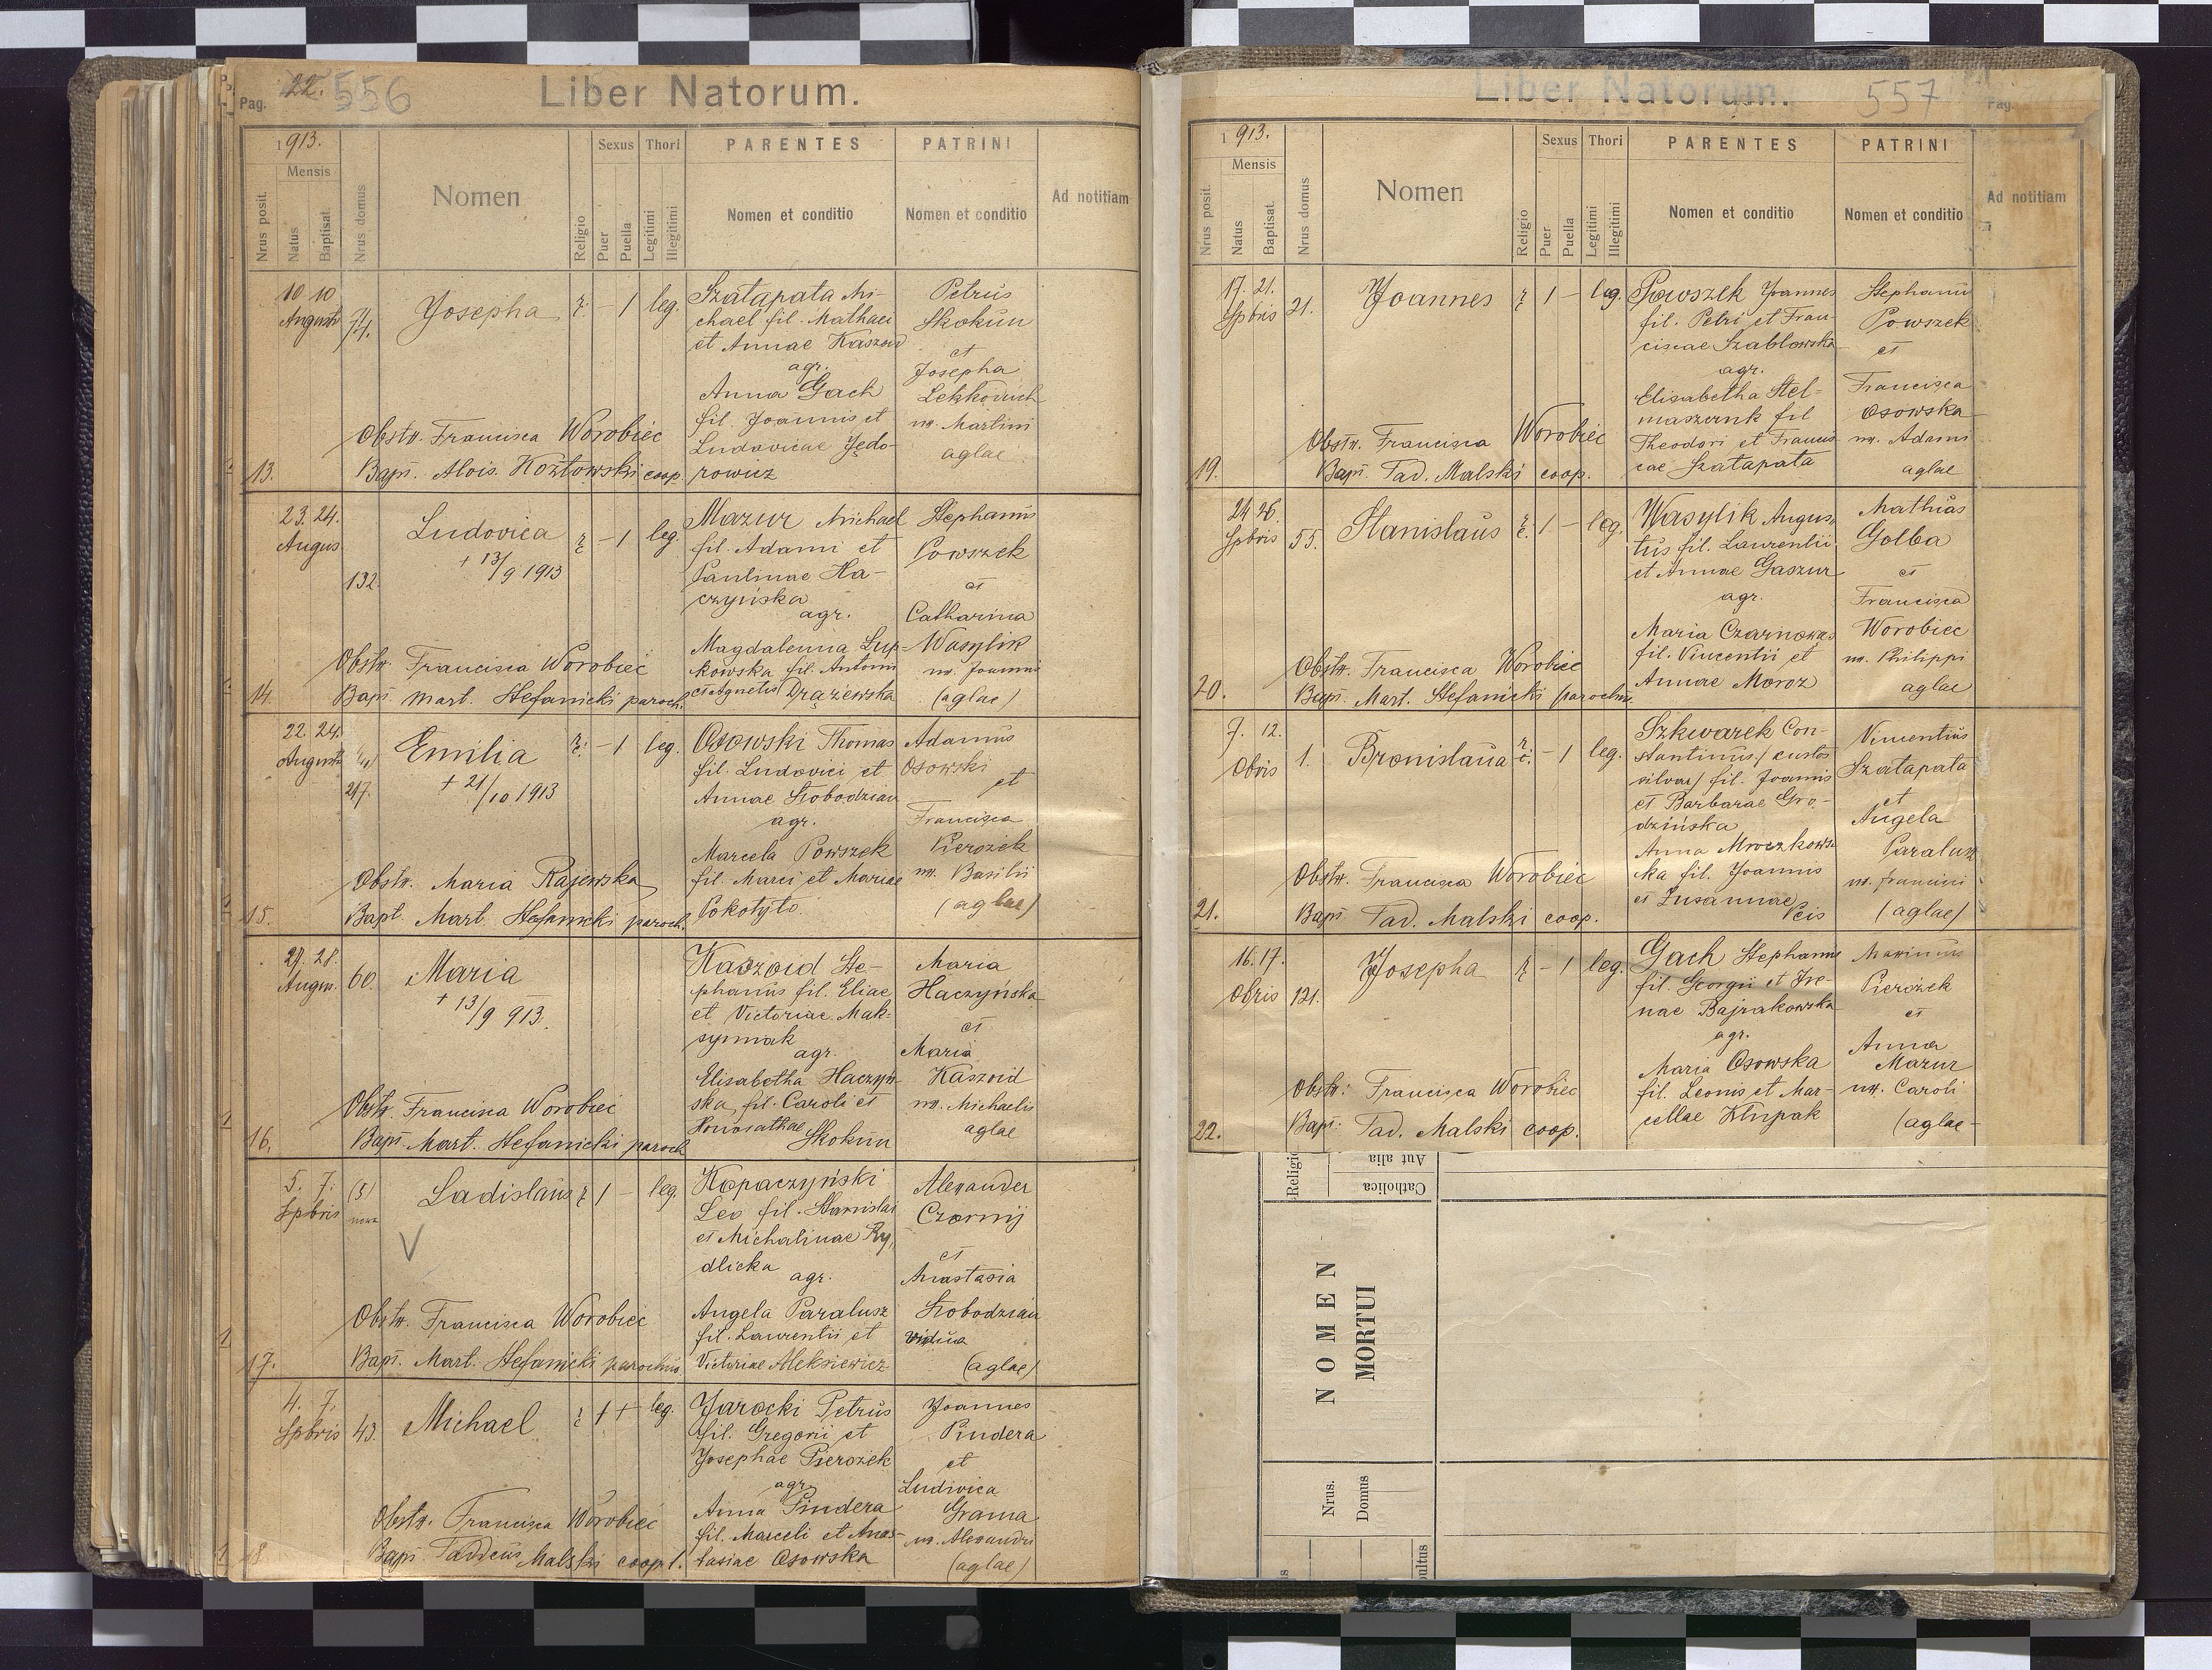 Pag. 22. 556
Liber Natorum.
1913.
Mensis
Nrus posit.
Natus
Baptisat.
Nrus domus
Nomen
Religio
Sexus
Puer
Puella
Thori
Legitimi
Illegitimi
PARENTES
Nomen et conditio
PATRINI
Nomen et conditio
Ad notitiam
10 10
Augusti
74.
Josepha
1 leg.
Szatapata Mi-
chael fil. Mathaei
et Annae Kaszoid
agr.
Anna Gach
fil. Joannis et
Ludovicae Jędo-
rowicz
Petrus
Skokun
et
Josepha
ux. Martini
aglae
Obstr. Francisca Worobiec
13. Bapt. Alois. Kozłowski coop.
23. 24.
Augus
132.
Ludovica
+ 13/9 1913
1 leg.
Mazur Michael
fil. Adami et
Paulinae Ha-
czyńska
agr.
Magdalenna Łup-
kowska fil. Antonii
et Agnetis Drążewska
Stephanus
Powszek
et
Catharina
Wasylik
ux. Joannis
(aglae)
Obstr. Francisca Worobiec
14. Bapt. Mart. Stefanicki paroch.
22. 24.
Augusti
217.
Emilia
+ 21/10 1913
1 leg.
Osowski Thomas
fil. Ludovici et
Annae Słobodzian
agr.
Marcela Powszek
fil. Marci et Mariae
Pokotyło
Adamus
Osowski
et
Francisca
Pierożek
ux. Basilii
(aglae)
Obstr. Maria Rajewska
15. Bapt. Mart. Stefanicki paroch.
27. 28.
Augus.
60.
Maria
+ 13/9 913.
Kaszoid Ste-
phanus fil. Eliae
et Victoriae Mak-
symiak
agr.
Elisabetha Haczyń-
ska fil. Caroli et
Skokun
Maria
Haczyńska
et
Maria
Kaszoid
ux. Michaelis
aglae
Obstr. Francisca Worobiec
16. Bapt. Mart. Stefanicki paroch
5. 7.
Spbris
(3)
Ladislaus
1 – leg.
V
Kopaczyński
Leo fil. Stanislai
et Michalinae Ry-
dlicka
agr.
Angela Paralusz
fil. Laurentii et
Victoriae Aleksiewicz
Alexander
Czornij
et
Anastasia
Słobodzian
vidua
(aglae)
Obstr. Francisca Worobiec
17. Bapt. Mart. Stefanicki parochus
4. 7.
Spbris
43.
Michael
leg.
Jarocki Petrus
fil. Gregorii et
Josephae Pierożek
agr.
Anna Pindera
fil. Marceli et Anas-
tasiae Osowska
Joannes
Pindera
et
Ludwica
Grama
ux. Alexandri
(aglae)
Obstr. Francisca Worobiec
18 Bapt. Taddeus Malski coop.
Liber Natorum.
557
Pag.
1913.
Mensis
Nrus posit.
Natus
Baptisat.
Nrus domus
Nomen
Religio
Sexus
Puer
Puella
Thori
Legitimi
Illegitimi
PARENTES
Nomen et conditio
PATRINI
Nomen et conditio
Ad notitiam
17. 21.
Spbris
21.
Joannes
1 – leg.
Powszek Joannes
fil. Petri et Fran-
ciscae Szablowska
agr.
Elisabetha Stel-
maszczuk fil
Theodori et Francis
cae Szatapata
Stephanus
Powszek
et
Francisca
Osowska
ux. Adami
aglae
Obstr. Francisca Worobiec
19. Bapt. Tad. Malski coop.
24 26.
Spbris
55.
Stanislaus
1 – leg.
Wasylik Augus-
tus fil. Laurentii
et Annae Gaszur
agr.
fil. Vincentii et
Annae Moroz
Mathias
Golba
et
Francisca
Worobiec
ux. Philippi
aglae
Obstr. Francisca Worobiec
20. Bapt. Mart. Stefanicki parochus
7. 12.
Obris
1.
Bronislaua
– 1 leg.
Szkwarek Con-
stantinus (custos
silvae) fil. Joannis
et Barbarae Gro-
dzińska
Anna Mroczkows-
ka fil. Joannis
et Zusannae
Veis
Vincentius
Szatapata
et
Angela
Paralusz
ux. Francisci
(aglae)
Obstr. Francisca Worobiec
21. Bapt. Tad. Malski coop.
16. 17.
Obris
121.
Josepha
– 1 leg.
Gach Stephanus
fil. Georgii et Ire-
nae Bajrakowska
agr.
Maria Osowska
fil. Leonis et Mar-
cellae Klupak
Maximus
Pierożek
et
Anna
Mazur
ux. Caroli
(aglae-
Obstr: Francisca Worobiec
22. Bapt: Tad. Malski coop.
Religio
Catholica
Aut alia
NOMEN
MORTUI
Nrus.
Domus